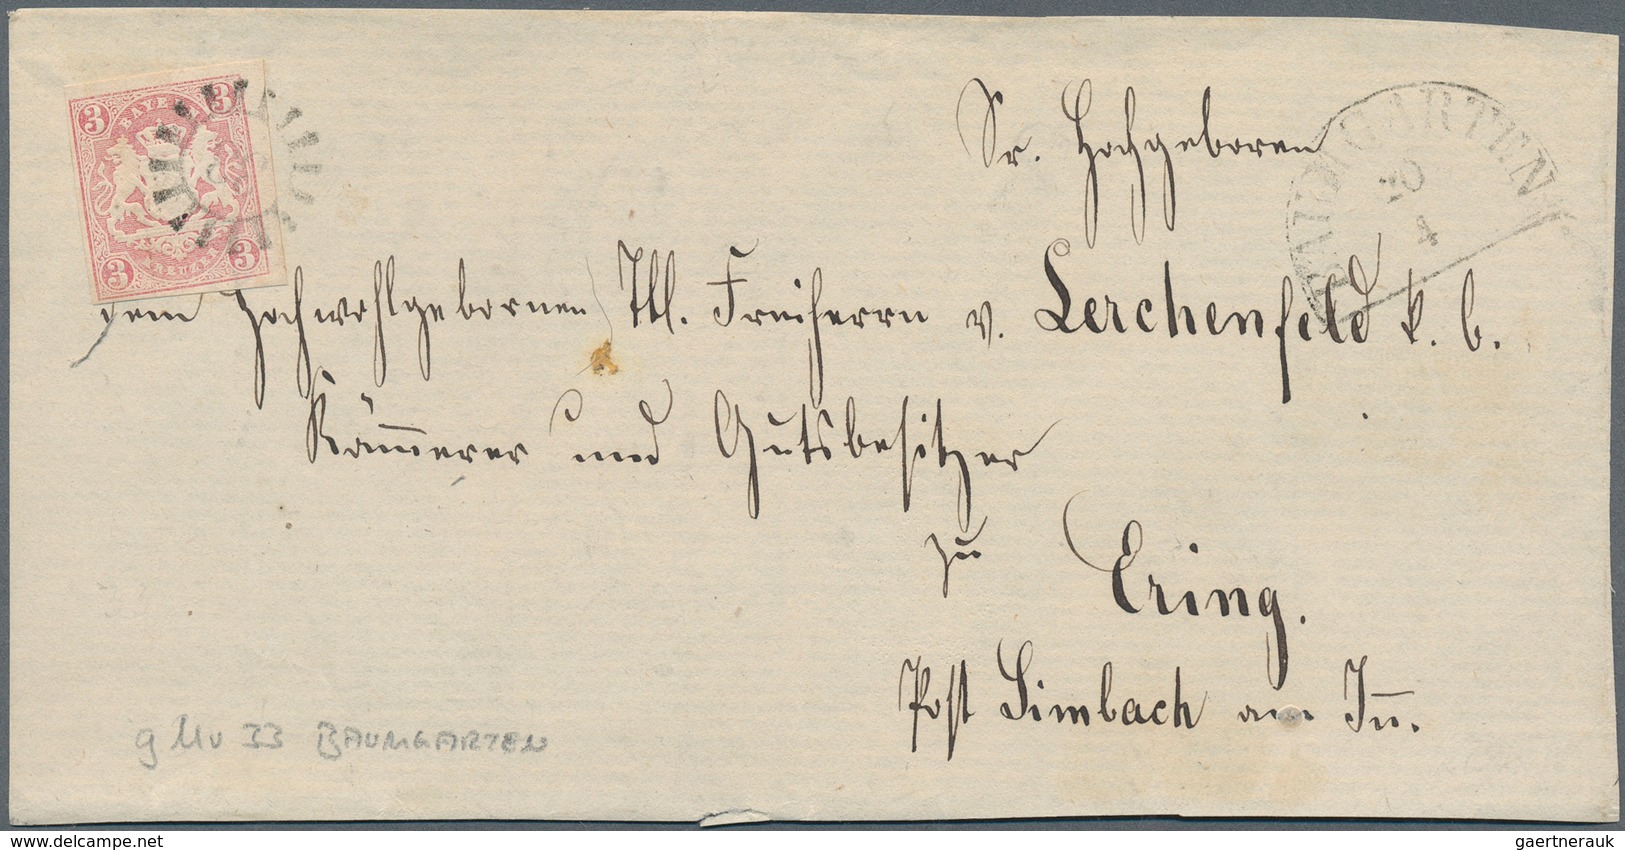 3 BAYERN 3
3 KREUZER 3
BAUMGARTEN
20
4
Sr. Hochgeboren
dem Hochwohlgebornen Ttl. Freiherrn v. Lerchenfeld k. b.
Kam̅erer und Gutsbesitzer
zu Ering.
Post Simbach am In̅.
g Mu 33 BAUMGARTEN
www.delcampe.net
gaertnerauk